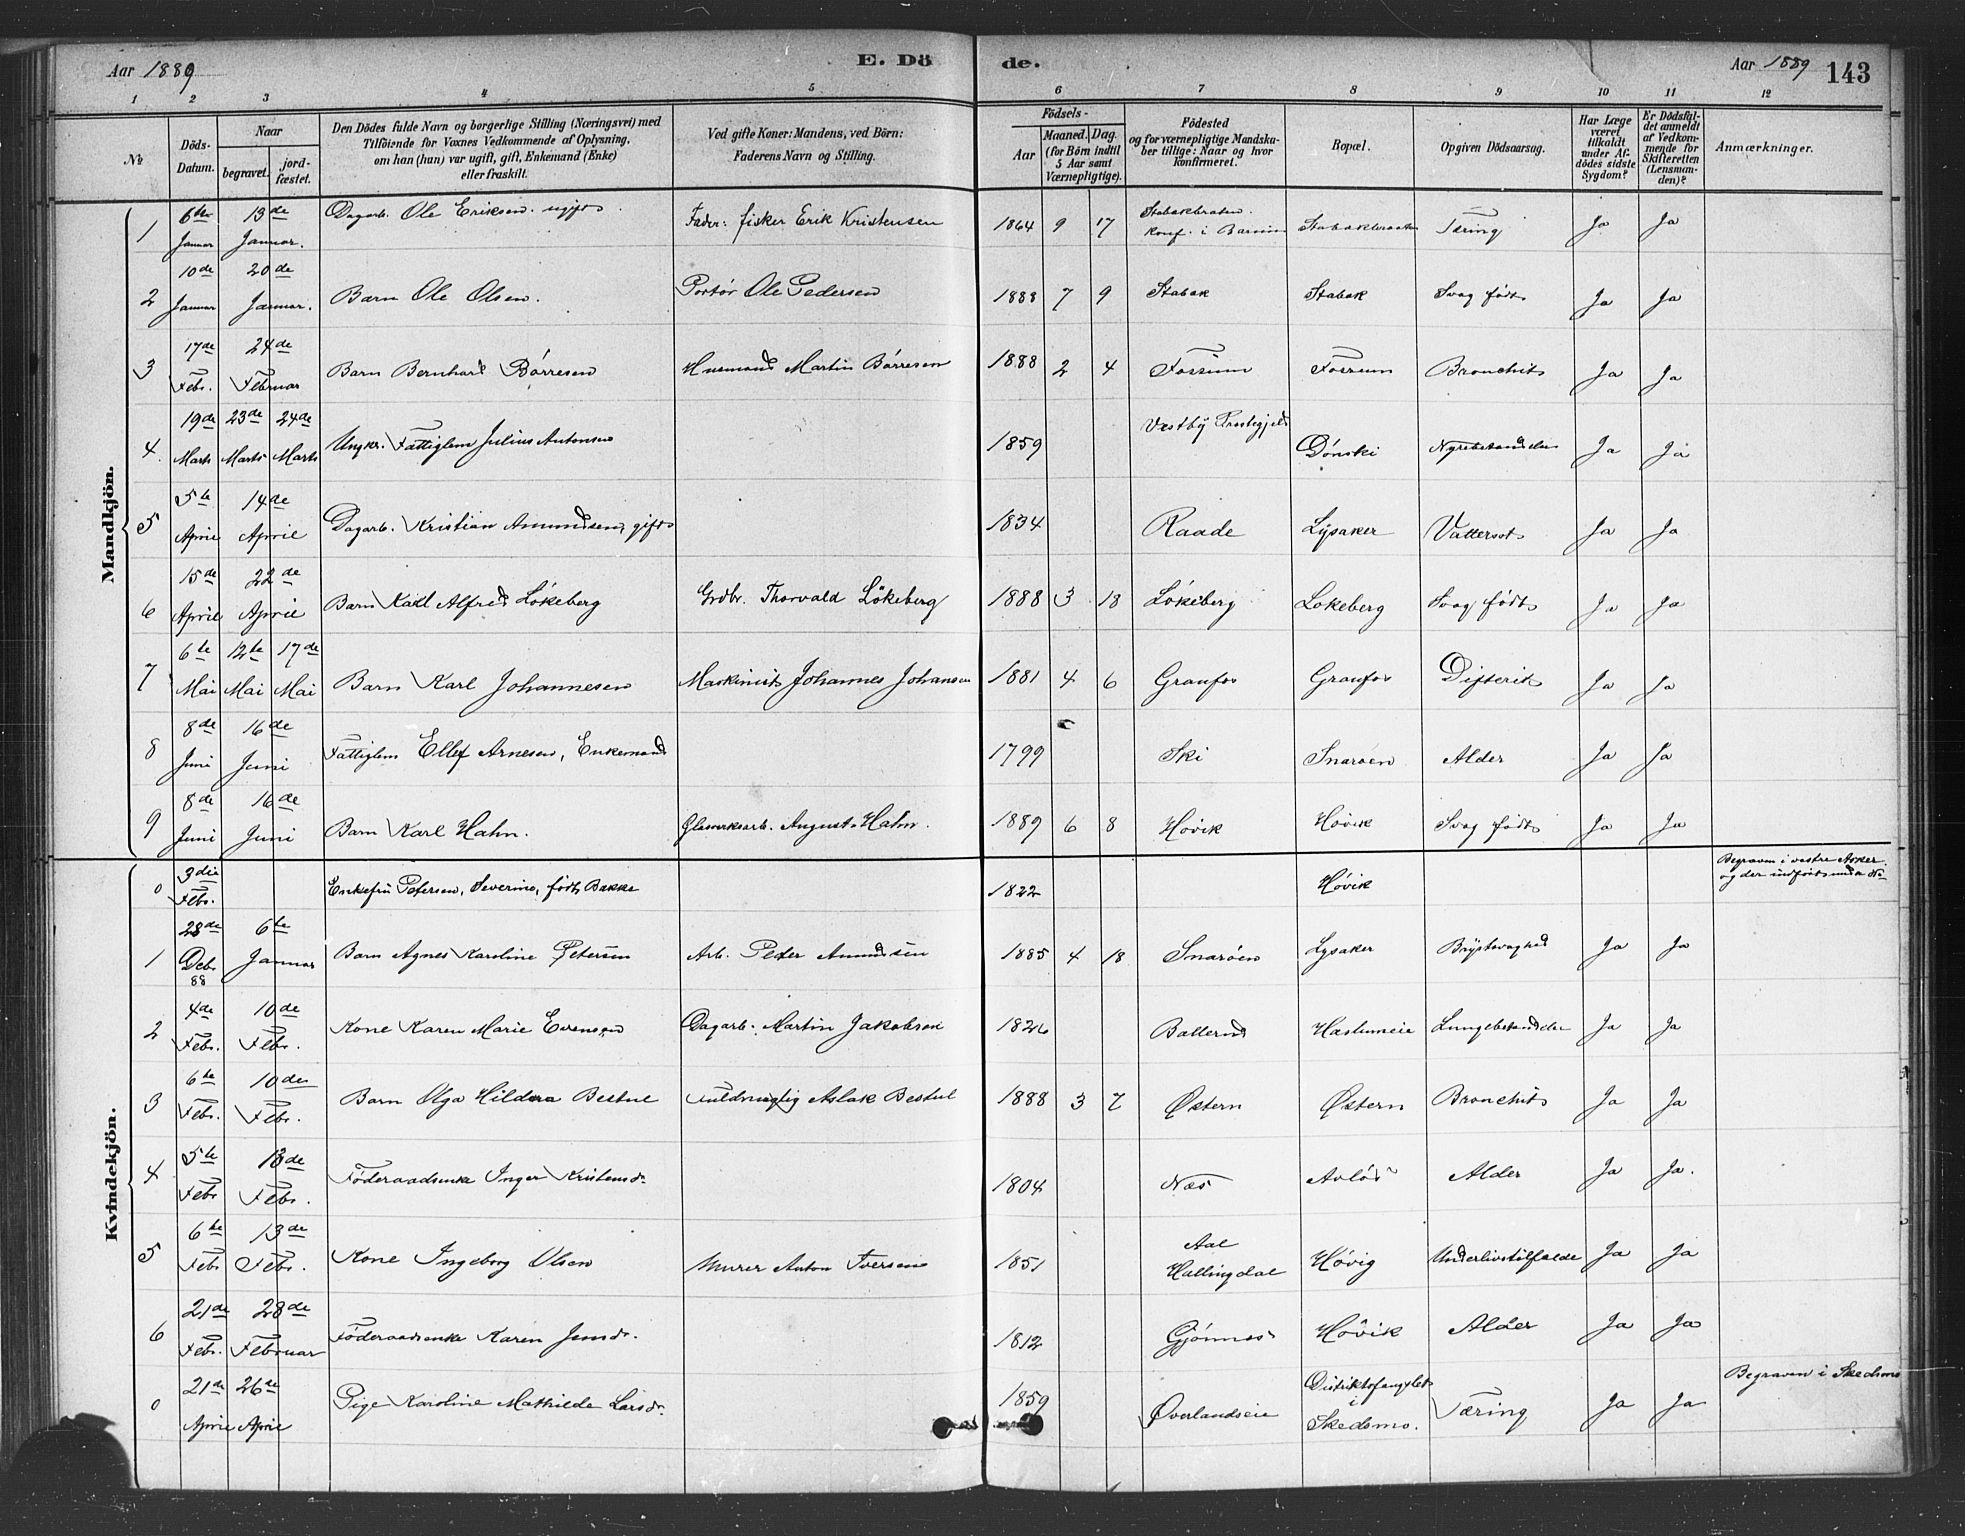 Aar 1889 E. Dö de. Aar 1889 143
1 2 3 4 5 6 7 8 9 10 11 12
№
Döds-Datum.
Naar
begravet.
jord-fæstet.
Den Dödes fulde Navn og borgerlige Stilling (Næringsvei) med
Tilföiende for Voxnes Vedkommende af Oplysning,
om han (hun) var ugift, gift, Enkemand (Enke)
eller fraskilt.
Ved gifte Koner: Mandens, ved Börn:
Faderens Navn og Stilling.
Födsels-
Aar
Maaned. Dag.
(for Börn indtil
5 Aar samt
Værnepligtige).
Födested
og for værnepligtige Mandska-
ber tillige: Naar og hvor
konfirmeret.
Bopæl.
Opgiven Dödsaarsag.
Har Læge
været
tilkaldt
under Af-
dödes sidste
Sygdom?
Er Dödsfal-
det anmeldt
af Vedkom-
mende for
Skifteretten
(Lensman-
den)?
Anmærkninger.
Mandkjön.
1 6te Januar 13de Januar. Dagarb. Ole Eriksen. ugift. Fader: fisker Erik Kristensen 1864 9 17 Stabækbraaten. konf. i Bærum Stabækbraaten Tæring Ja Ja
2 10de Januar 20de Januar. Barn Ole Olsen. Portør Ole Pedersen 1888 7 9 Stabæk Stabæk Svag født Ja Ja
3 17de Febr. 24de Februar Barn Bernhard Børresen Husmand Martin Børresen 1888 2 4 Fossum Fossum Bronchit Ja Ja
4. 19de Marts 23de Marts 24de Marts Ungkr. Fattiglem Julius Antonsen 1859 Vestby Prestegjeld Dønski Nyrebetændelse Ja Ja
5 5te April 14de April Dagarb. Kristian Amundsen, gift 1834 Raade Lysaker Vattersot Ja Ja
6 15de April 22de April Barn Karl Alfred Løkeberg Grdbr. Thorvald Løkeberg 1888 3 18 Løkeberg Løkeberg Svag født Ja Ja
7 6te Mai 12te Mai 17de Mai Barn Karl Johannesen Maskinist Johannes Johansen 1881 4 6 Granfos Granfos Difterit Ja Ja
8 8de Juni 16de Juni Fattiglem Ellef Arnesen, Enkemand 1799 Ski Snarøen Alder Ja Ja
9 8de Juni 16de Juni Barn Karl Hahn. Glasverksarb. August Hahn. 1889 6 8 Høvik Høvik Svag født Ja Ja
Kvindekjön.
0 3die Febr. Enkefru Petersen, Severine, født Bakke 1822 Høvik Begraven i vestre Aker. og der indført under No
1 28de Debr 88 6te Januar Barn Agnes Karoline Petersen Arb. Peder Amundsen 1885 4 18 Snarøen Lysaker Brystsvaghed Ja Ja
2 4de Febr. 10de Febr. Kone Karen Marie Evensen Dagarb. Martin Jakobsen 1826 Ballerud Haslumeie Lungebetændelse Ja Ja
3 6te Febr. 10de Febr. Barn Olga Hildera Bestul Aslak Bestul 1888 3 7 Østern Østern Bronchit Ja Ja
4 5te Febr 13de Febr. Føderaadsenke Inger Kristensdr. 1804 Næs Avløs Alder Ja Ja.
5 6te Febr 13de Febr. Kone Ingeborg Olsen Murer Anton Iversen 1851 Aal Hallingdal Høvig Underlivstilfælde Ja Ja
6 21de Febr. 28de Februar Føderaadsenke Karen Jensdr. 1812 Gjønnes Høvik Alder Ja Ja
0 21de April 26de April Pige Karoline Mathilde Larsdr. 1859 Øverlandseie Distriktsfængslet i Skedsmo. Tæring Ja Ja Begraven i Skedsmo